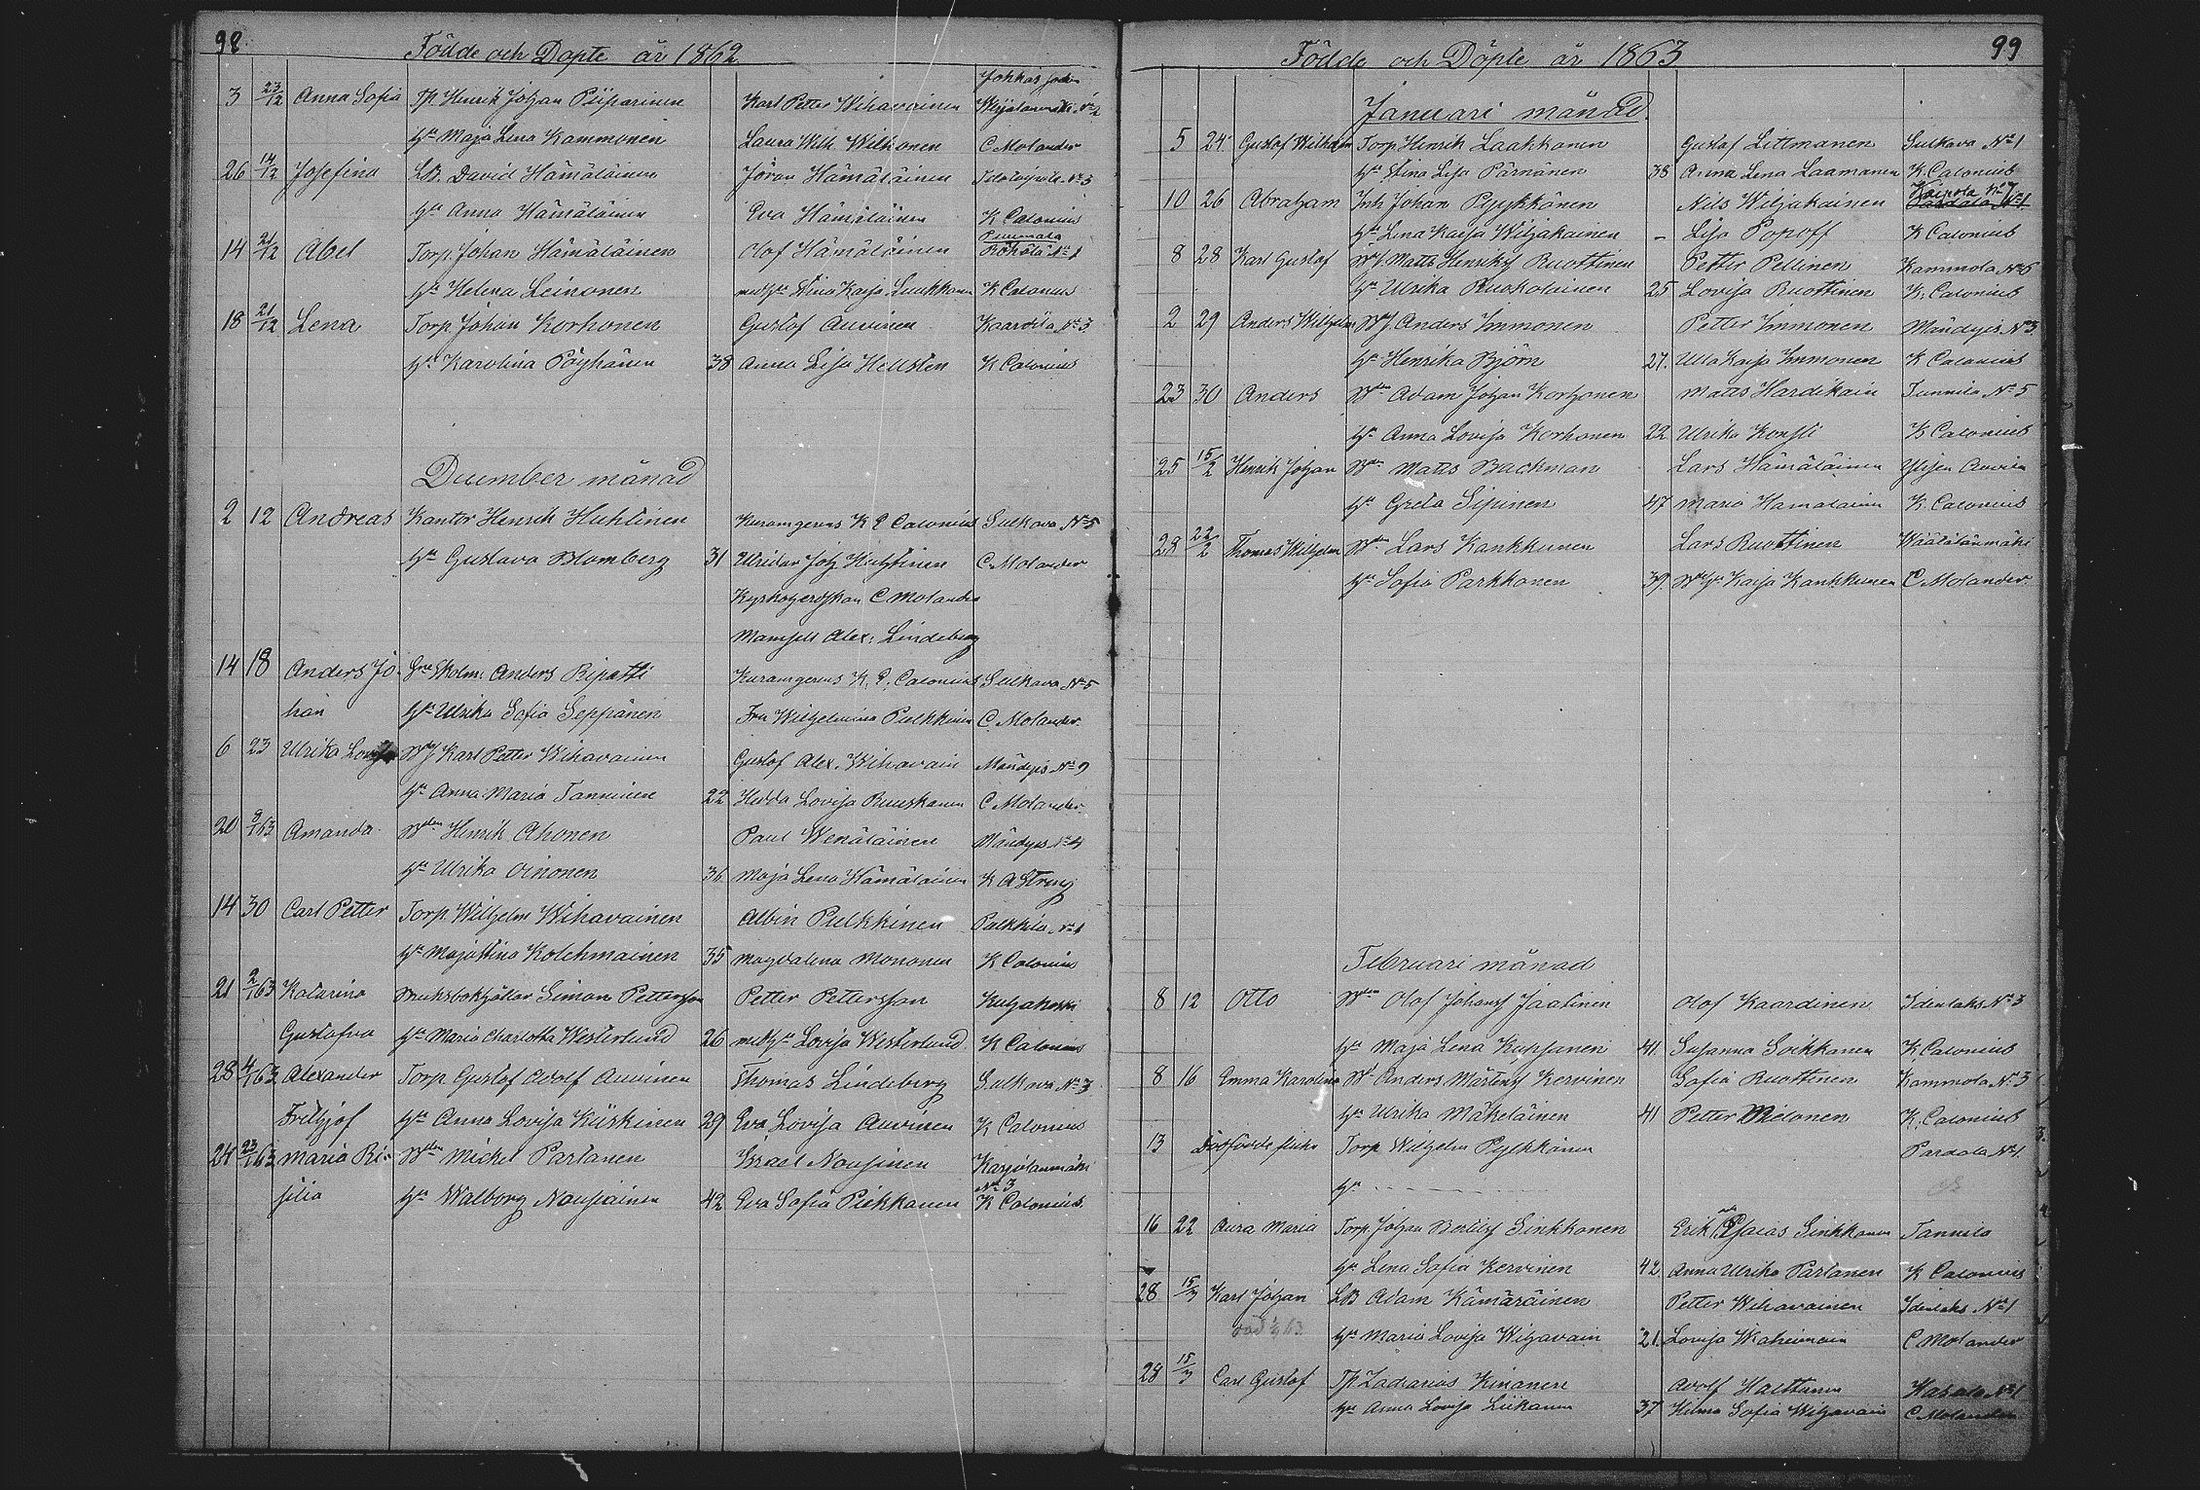 98
Födde och Döpte år 1862
3 23/12 Anna Sofia Tp. Henrik Johan Piiparinen Karl Petter Wihavainen
Hu Maja Lena Kammonen Laura Wilh. Wilkonen C Molander
26 14/12 Josefina LB. David Hämäläinen Jöran Hämäläinen
Hu Anna Hämäläinen Eva Hämäläinen K Calonius
14 21/12 Abel Torp. Johan Hämäläinen Olof Hämäläinen
Hu Helena Leinonen K Calonius
18 21/12 Lena Torp Johan Korhonen Gustof Auvinen Kaartila No 3
Hu Karolina Pöyhönen 38 Anna Lisa Hellsten K Calonius
December månad
2 12 Andreas Kantor Henrik Huhtinen K E Calonius Sulkava No 5
Hu Gustava Blomberg 31 Joh Huhtinen C Molander
C Molander
Mamsell Alex: Lindeberg
14 18 Anders Jo- Anders Ripatti K. E. Calonius Sulkava No 5
han Hu Ulrika Sofia Seppänen Fru Wilhelmina Pulkkinen C. Molander
6 23 Ulrika Lovisa Karl Petter Wihavainen Gustof Alex. Wihavain No 9
Hu Anna Maria Tanninen 22 Hedda Lovisa Ruuskanen C Molander
20 /1 63 Amanda Henrik Ahonen Paul Wenäläinen No 4
Hu Ulrika Oinonen 36 Maja Lena Hämäläinen
14 30 Carl Petter Torp Wilhelm Wihavainen Albin Pulkkinen
Hu Majastina Kolehmainen 35 Magdalena Mononen K Calonius
21 2/1 63 Katarina Simon Pettersson Petter Pettersson
Gustafva Hu Maria Charlotta Westerlund 26 Lovisa Westerlund K Calonius
28 4/1 63 Alexander Torp Gustof Adolf Auvinen Thomas Lindeberg Sulkava No 3
Frithjof Hu Anna Lovisa Kiiskinen 29 Eva Lovisa Auvinen K Calonius
24 23/1 63 Maria Ri- Michel Partanen Israel Nousinen Karjulanmäki
No 3
silia Hu Walborg Nousiainen 42 Eva Sofia K Calonius
99
Födde och Döpte år 1863
Januari månad.
5 24 Gustof Wilhelm Torp. Henrik Laakkonen Gustof Littmanen Sulkava No 1
Hu Stina Lisa Pärnänen 38 Anna Lena Laamanen K. Calonius
10 26 Abraham Inh Johan Pyykkönen Nils Wiljakainen
Hu Lena Kaisa Wiljakainen – Lisa Popoff K Calonius
8 28 Karl Gustof Matts Henriks Ruottinen Petter Pellinen Kammola No 6
Hu Ulrika Ruokolainen 25 Lovisa Ruottinen K. Calonius
2 29 Anders Wilhelm Anders Immonen Petter Immonen No 3
Hu Henrika Björn 27. Ulla Kaisa Immonen K Calonius
23 30 Anders Adam Johan Korhonen Matts Hardikain Tunnila No 5
Hu Anna Lovisa Korhonen 22 Ulrika K Calonius
25 15/2 Henrik Johan Matts Backman Lars Hämäläinen
Hu Greta Sipinen 47 Maria Hämäläinen K. Calonius
28 22/2 Thomas Wilhelm Lars Kankkunen Lars Ruottinen Wäätälänmäki
Hu Sofia Parkkonen 39. Kaisa Kankkunen C Molander.
Februari månad
8 12 Otto Olof Johans Jaatinen Olof Kaardinen Idenlaks No 3
Hu Maja Lena 41. Susanna Soikkanen K Calonius
8 16 Emma Karolina Anders Mårtens Kervinen Sofia Ruottinen Kammola No 3
Hu Ulrika Mäkeläinen 41 Petter K. Calonius
13 Dödfödde flicka Torp Wilhelm Pylkkänen Pardala No 1.
Hu
16 22 Maria Torp. Johan Sinkkonen Erik Esaias Sinkkonen Tannila
Hu Lena Sofia Kervinen 42 Anna Ulrika Partanen K Calonius
28 15/3 Karl Johan LB Adam Kämäräinen Petter Wihavainen Idenlaks No 1
Hu Maria Lovisa Wihavain 21. Lovisa C Molander
28 15/3 Carl Gustof Tp. Zacharias Kinanen Adolf Halttunen No 1
Hu Anna Lovisa Liikanen 37 Hilma Sofia Wihavain C Molander